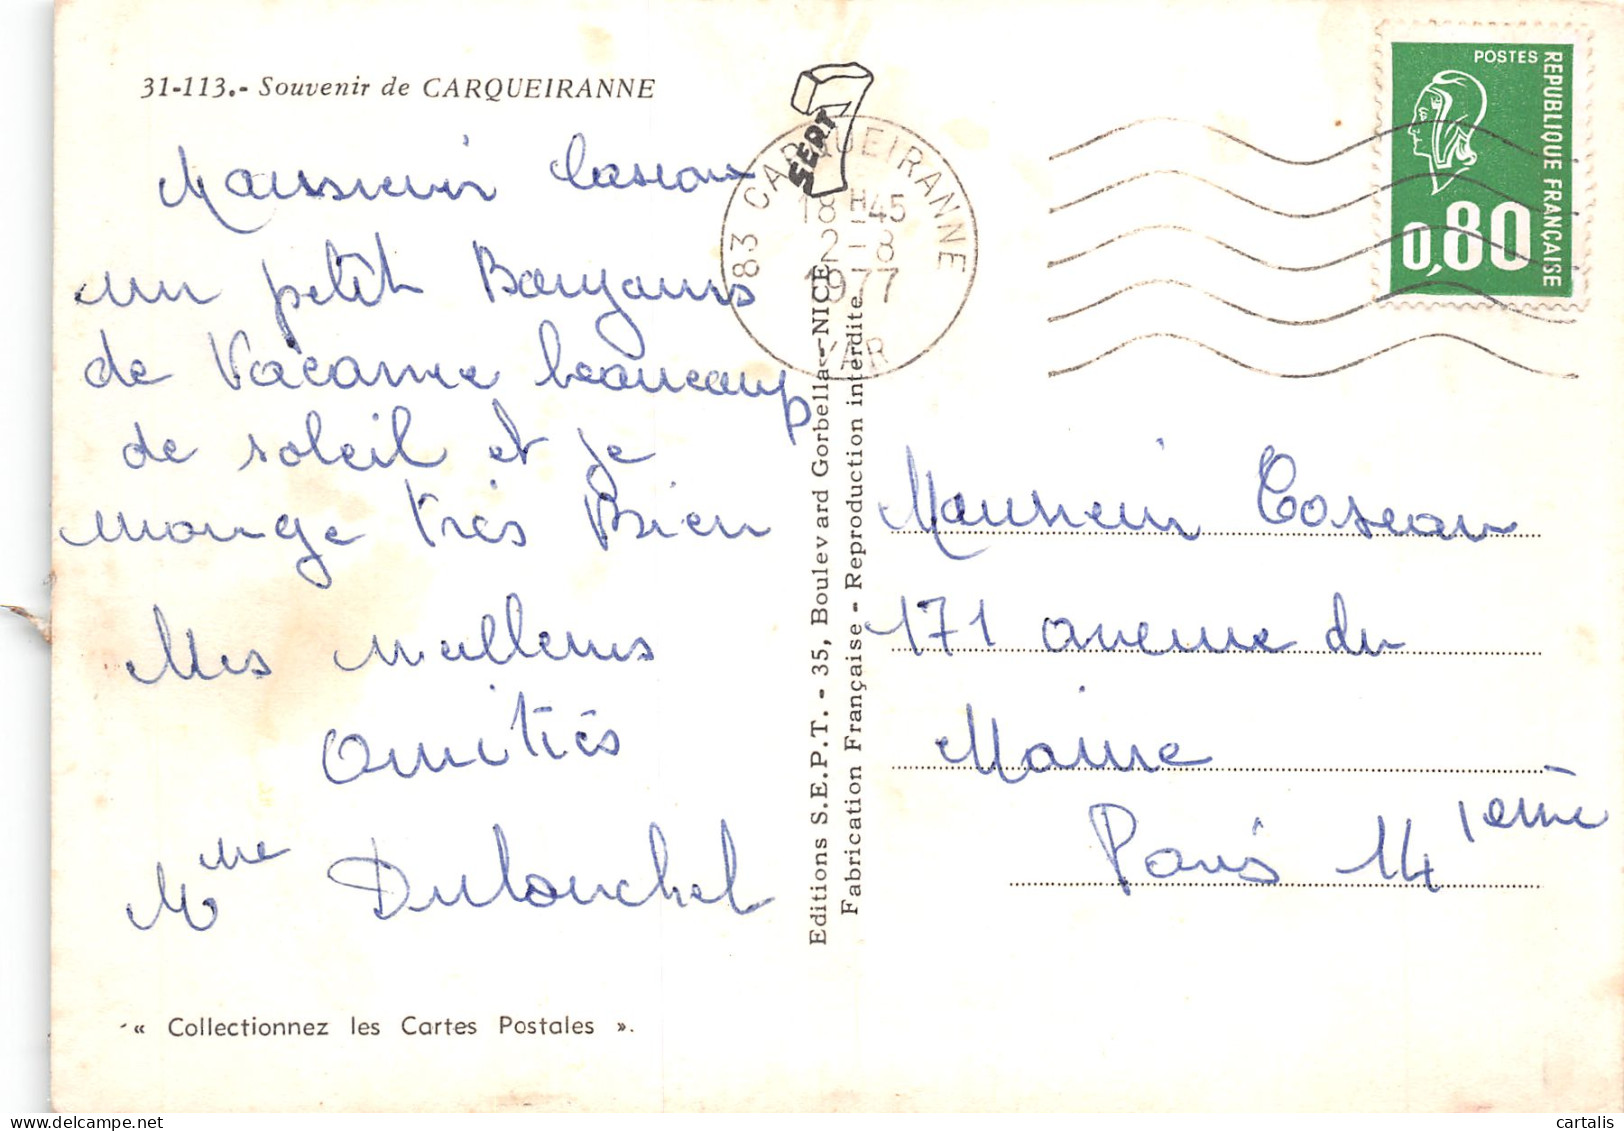 31-113.- Souvenir de CARQUEIRANNE
Monsieur Coseau
un petit Bonjours
de Vacance beaucoup
de soleil et je
mange très Bien
Mes meilleurs
amitiés
Mme Dulouchel
« Collectionnez les Cartes Postales ».
Editions S.E.P.T. - 35, Boulevard Gorbella - NICE
Fabrication Française - Reproduction interdite
SEPT
83 CARQUEIRANNE
18H45
2-8
1977
VAR
POSTES
REPUBLIQUE FRANÇAISE
0,80
Monsieur Coseau
171 avenue du
Maine
Paris 14ième
cartalis